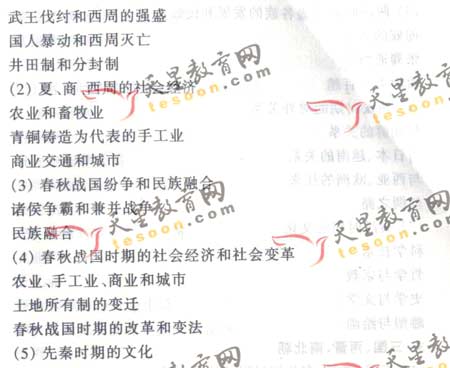 武王伐纣和西周的强盛
国人暴动和西周灭亡
井田制和分封制
(2) 夏、商、西周的社会经济
农业和畜牧业
青铜铸造为代表的手工业
商业交通和城市
(3) 春秋战国纷争和民族融合
诸侯争霸和兼并战争
民族融合
(4) 春秋战国时期的社会经济和社会变革
农业、手工业、商业和城市
土地所有制的变迁
春秋战国时期的改革和变法
(5) 先秦时期的文化
天星教育网
tesoon.com
天星教育网
tesoon.com
天星教育网
tesoon.com
天星教育网
tesoon.com
天星教育网
天星教育网